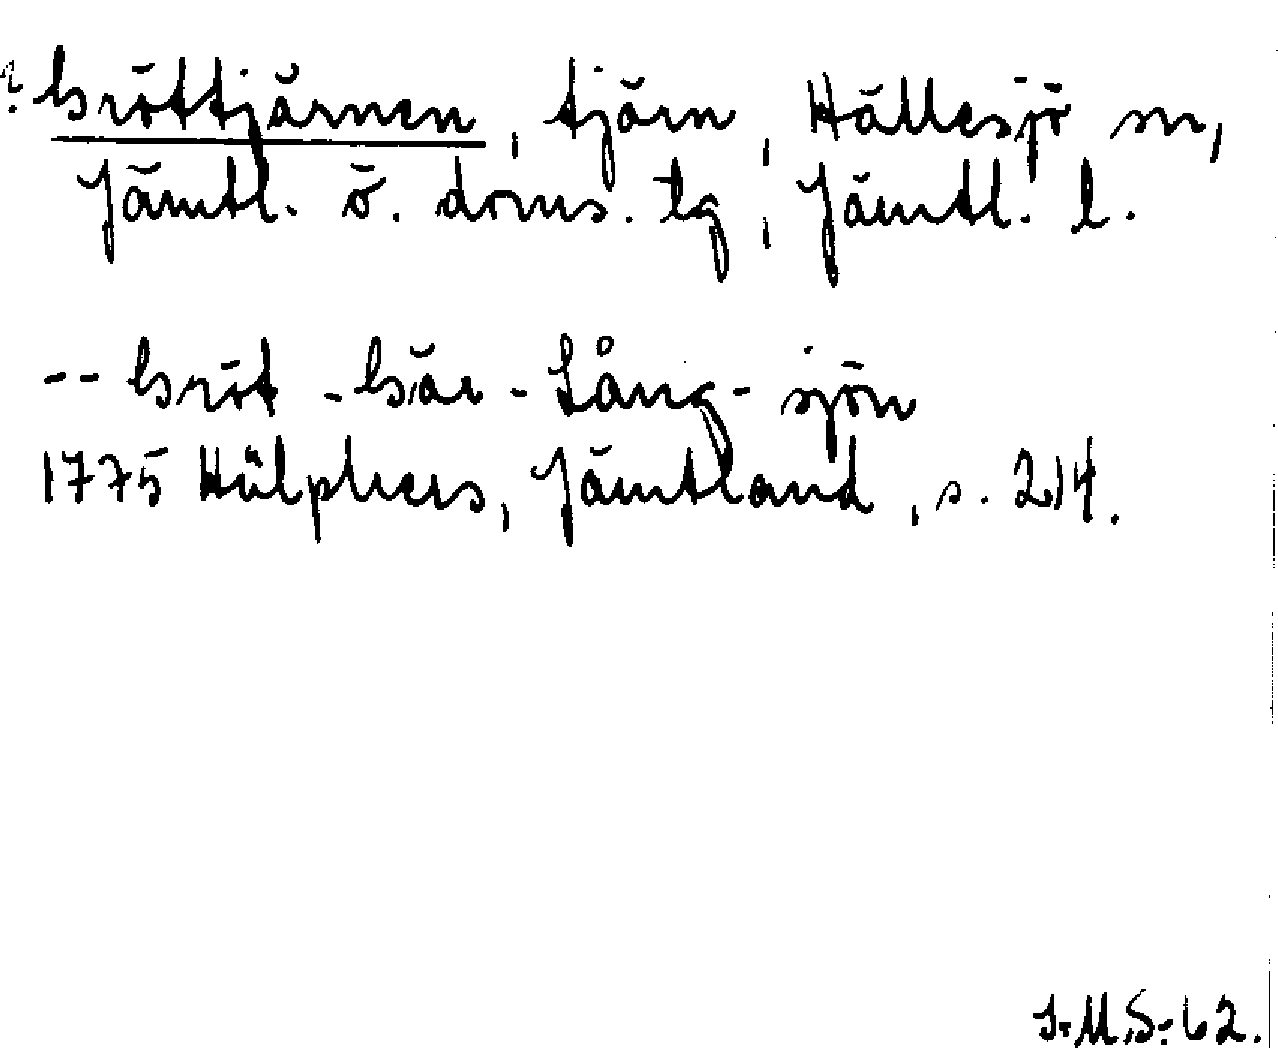 ? Gröttjärnen, tjärn, Hällesjö sn,
Jämtl. ö. doms. tg, Jämtl. l.
-- Gröt-Gär-Lång-sjön
1775 Hülphers, Jämtland, s. 214.
I.M.S. 62.